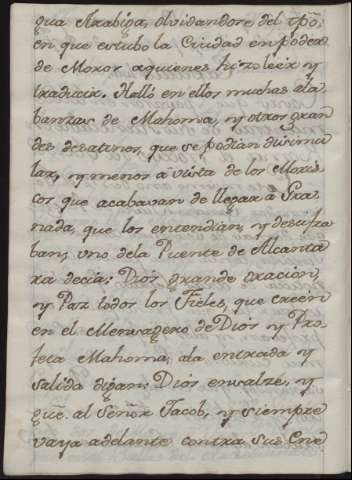 gua Arabiga, olvidandose del tpõ.
en que estubo la Ciudad en poder
de Moxos aquienes hizo leer y
traducir. Hallò en ellos muchas ala
banzas de Mahoma, y otros gran
des desatinos, que se podian disimu
lar, y menos à vista de los Moris
cos que acabavan de llegar à Gra
nada, que los entendian, y descifra
ban, uno dela Puente de Alcanta
ra decia: Dios grande oracion,
y Paz todos los Fieles, que creen
en el Mensagero de Dios y Pro
feta Mahoma, ala entrada y
salida digan: Dios ensalze, y
gue. al Señor Jacob, y siempre
vaya adelante contra sus Ene